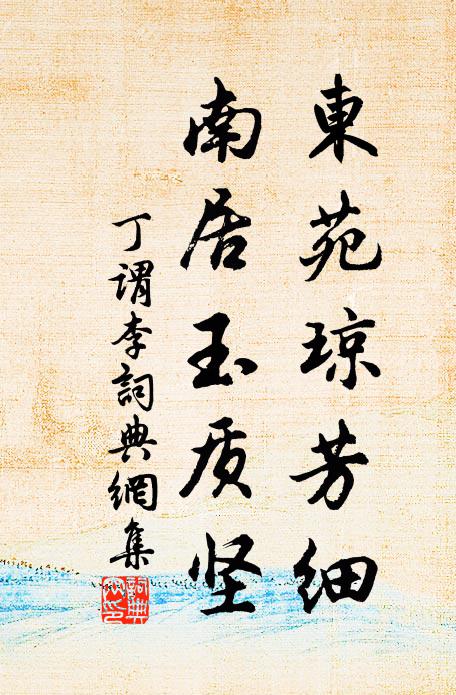 東苑琼芳细
南居玉质坚
丁谓李詞典網集
詞典